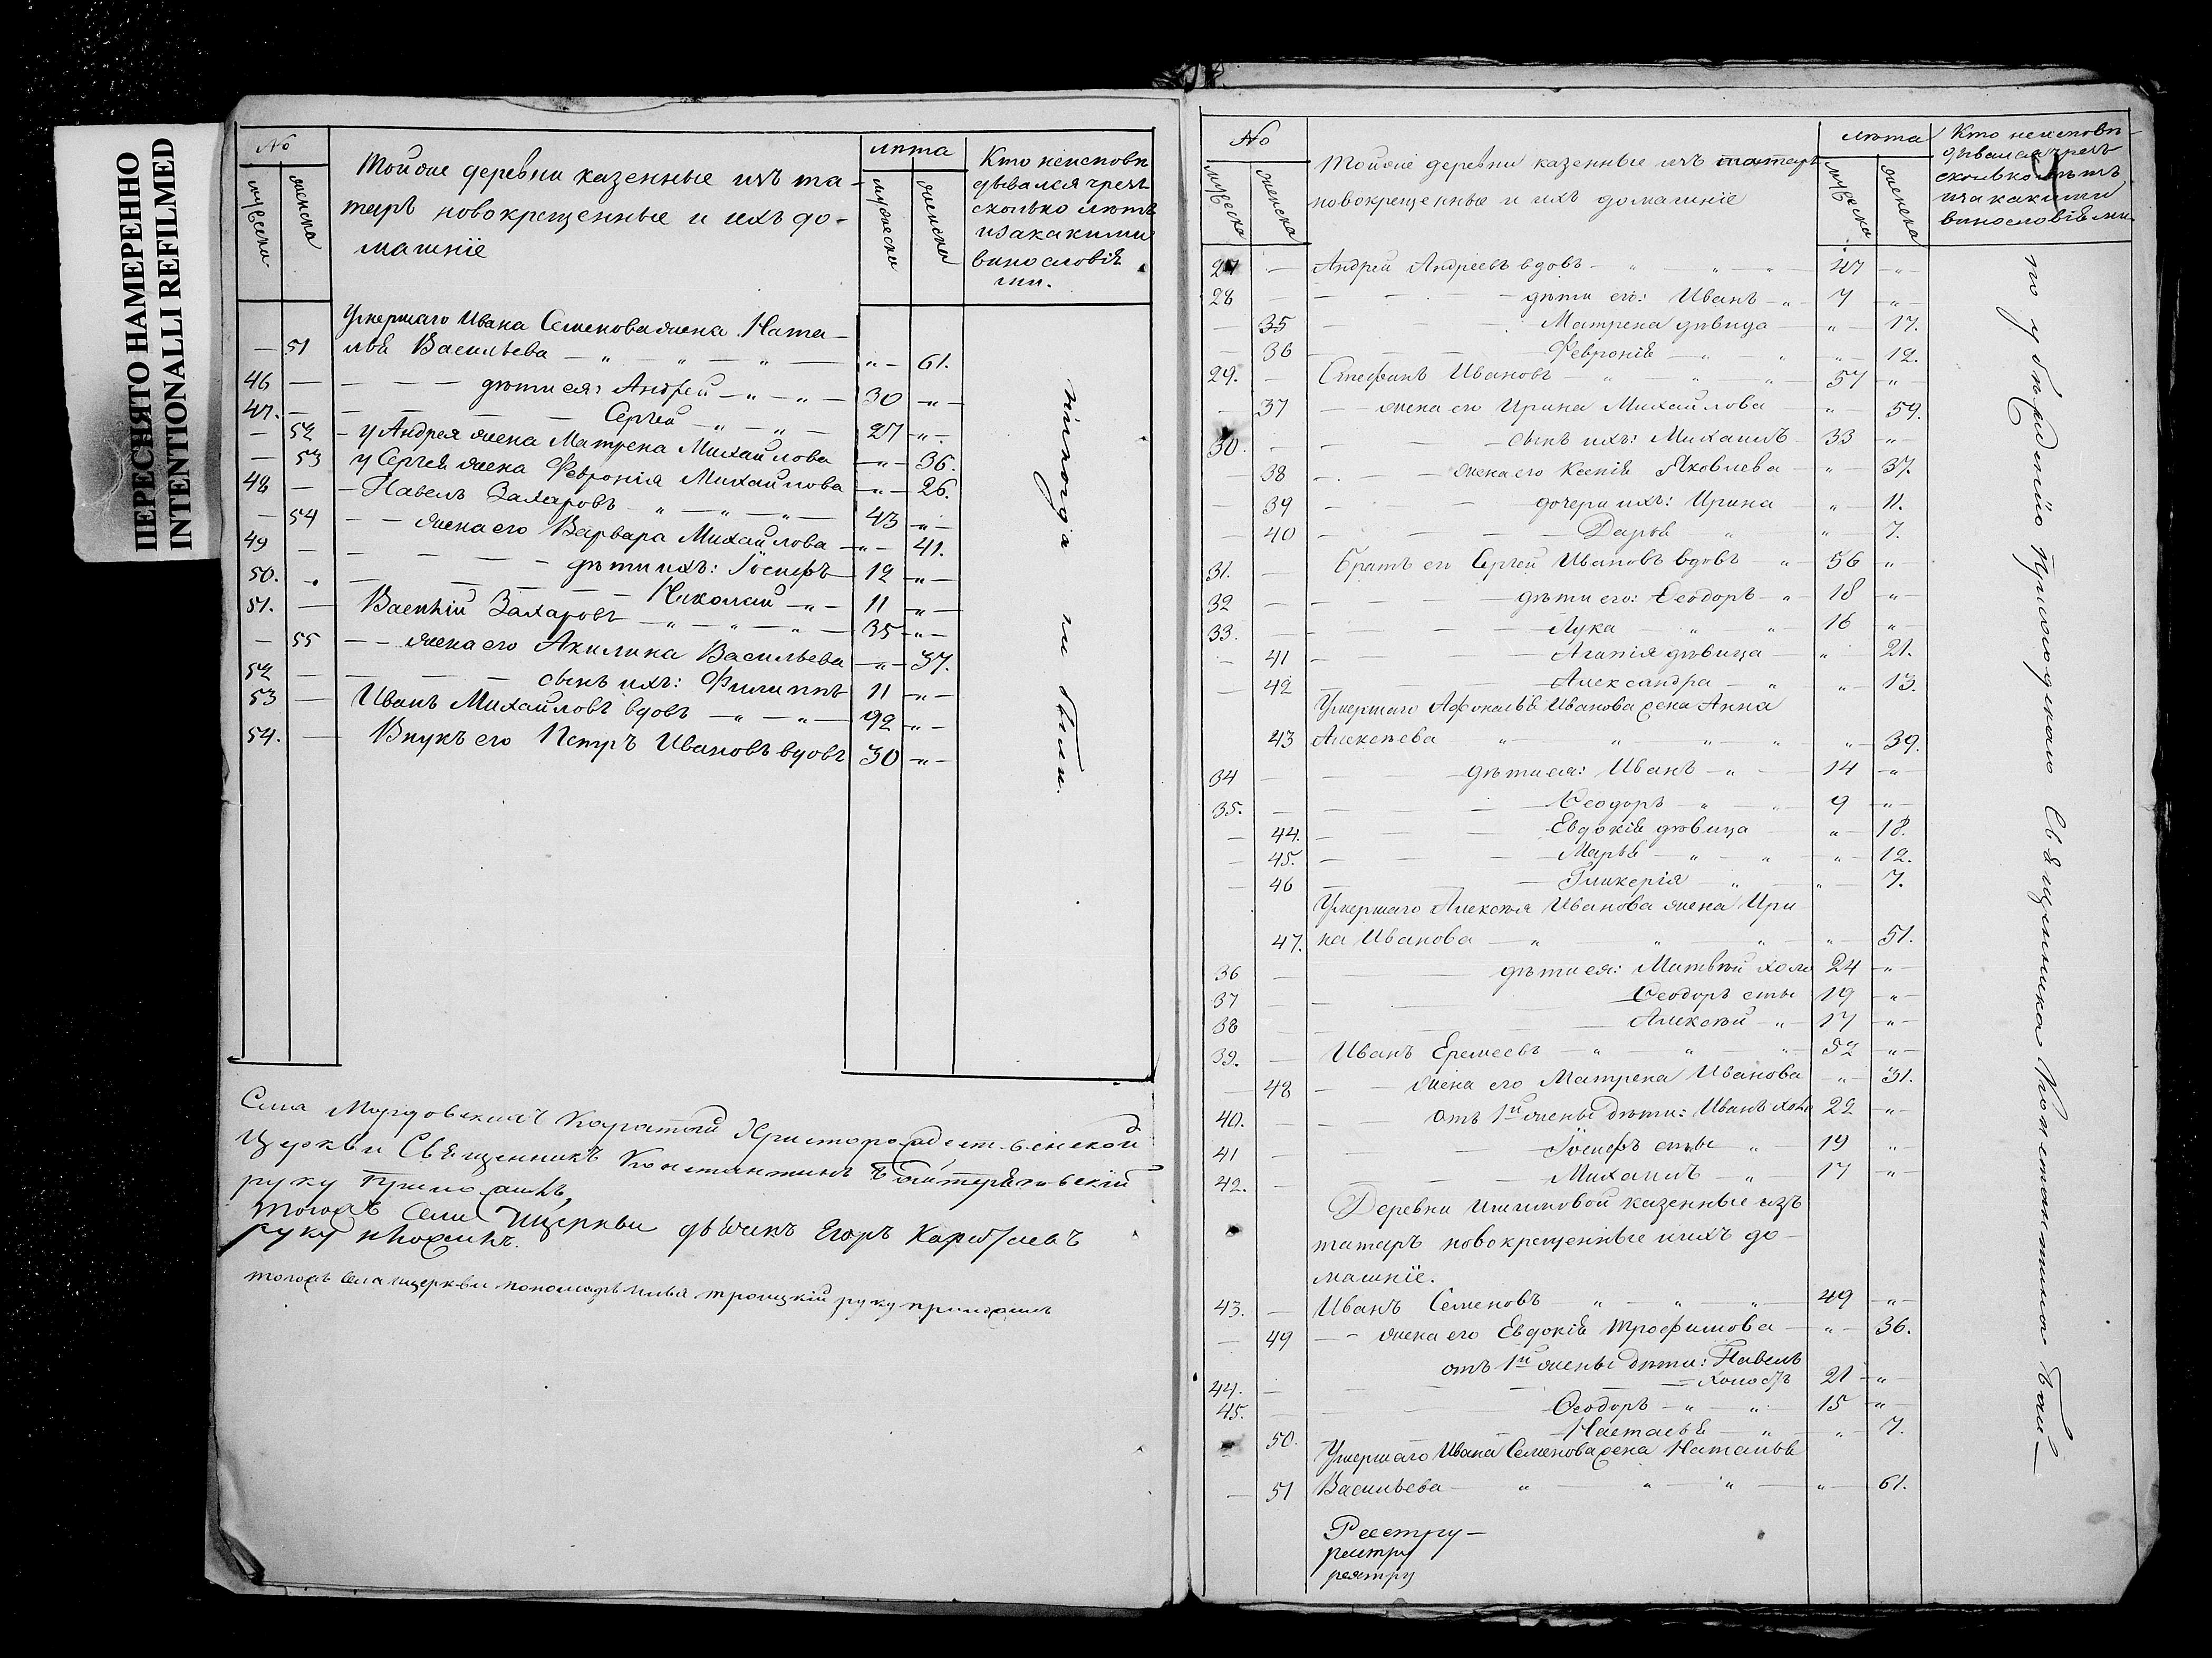 ПЕРЕСНЯТО НАМЕРЕННО
INTENTIONALLI REFILMED
№ мужеска женска
Тойже деревни казенные изъ та-
таръ новокрещенные и ихъ до-
машнiе
лѣта мужеска женска
Кто неисповѣ
дывался чрезъ
сколько лѣтъ
изакакими
винословiя
ми.
Умершаго Ивана Семенова жена Ната-
— 51 лья Васильева — „ — „ — „ — „ — 61.
46 — — — — дѣти ея: Андрей — „ — „ — 30 „ —
47. — — — — Сергей — „ — „ — 27 „ —
— 52 — у Андрея жена Матрена Михайлова — „ — 36.
— 53 у Сергея жена Феѵронiя Михайлова — „ — 26.
48 — — Павелъ Захаровъ „ — „ — „ — 43 „ —
— 54 — — жена его Варвара Михайлова — „ — 41.
49 — — — — дѣти ихъ: Iосифъ — 12 „ —
50. — — — — Николай — „ — 11 „ —
51. — Василiй Захаровъ — „ — „ — „ — 35 „ —
— 55 — — жена его Акилина Васильева — „ — 37.
52 — — — — сынъ ихъ: Филиппъ 11 „ —
53 — Иванъ Михайловъ вдовъ — „ — „ — 92 „ —
54. — Внукъ его Петръ Ивановъ вдовъ 30 „ —
были.
Села Мордовскихъ Каратай Христорождественской
Церкви Священникъ Константинъ
руку приложилъ,
тогожъ Села Ицеркви дьячекъ Егоръ
руку приложилъ.
тогожъ села ицеркви пономарь Илья Троицкiй руку приложилъ
№ мужеска женска
Тойже деревни казенные изъ татаръ
новокрещенные и ихъ домашнiе
лѣта мужеска женска
Кто неисповѣ-
дывался чрезъ
сколько лѣтъ
изакакими
винословiями
27 — Андрей Андреевъ вдовъ — „ — „ — „ — 47 „ —
28 — — — — дѣти его: Иванъ — „ 7 „ —
— 35 — — — Матрена дѣвица — „ — 17.
— 36 — — — Феѵронiя — „ — „ — „ — 12.
29. — Стефанъ Ивановъ — „ — „ — „ 57 „ —
— 37 — жена его Ирина Михайлова — „ — 59.
30. — — — — сынъ ихъ: Михаилъ 33 „ —
— 38 — — — жена его Ксенiя Яковлева — „ — 37.
— 39 — — — дочери ихъ: Ирина — „ — 11.
— 40 — — — Дарья „ „ — 7.
31. — Братъ его Сергей Ивановъ вдовъ — „ — 56 „ —
32 — — — — дѣти его: Ѳеодоръ — „ 18 „ —
33. — — — — Лука „ „ 16 „ —
— 41 — — — Агапiя дѣвица — „ 21.
— 42 — — — Александра — „ „ — 13.
Умершаго Афонасья Иванова жена Анна
43 Алексѣева „ „ „ „ „ — 39.
34 — — — дѣти ея: Иванъ — „ — 14 „ —
35. — — — — Ѳеодоръ — „ — „ 9 „ —
— 44. — — — Евдокiя дѣвица „ — 18.
— 45. — — — Марья — „ „ „ — 12.
— 46 — — — Гликерiя — „ „ — 7.
Умершаго Алексѣя Иванова жена Ири
47. на Иванова — „ „ „ „ — 51.
36 — — дѣти ея: Матвѣй холо 24 „ —
37 — — — Ѳеодоръ сты 19 „ —
38 — — — Алексѣй — „ — 17 „ —
39. — Иванъ Еремеевъ — „ — „ — „ — 52 „ —
— 48 — — жена его Матрена Иванова „ — 31.
40. — — — отъ 1й жены дѣти: Иванъ холо 22 „ —
41 — — — Iосифъ сты „ 19 „
42. — — — Михаилъ — „ 17 „ —
Деревни Ишимовой казенные изъ
татаръ новокрещенные иихъ до-
машнiе.
43. — Иванъ Семеновъ — „ — „ — „ — 49 „ —
— 49 — — жена его Евдокiя Трофимова — „ — 36.
отъ 1й жены дѣти: Павелъ
44. — — — холостъ 21 „ —
45. — — — Ѳеодоръ — „ — „ 15 „ —
50. — — Настасья „ „ — 7.
Умершаго Ивана Семенова жена Наталья
— 51 Васильева — „ — „ — „ — „ — 61.
Реестру —
реестру
реестру
Священника Константина